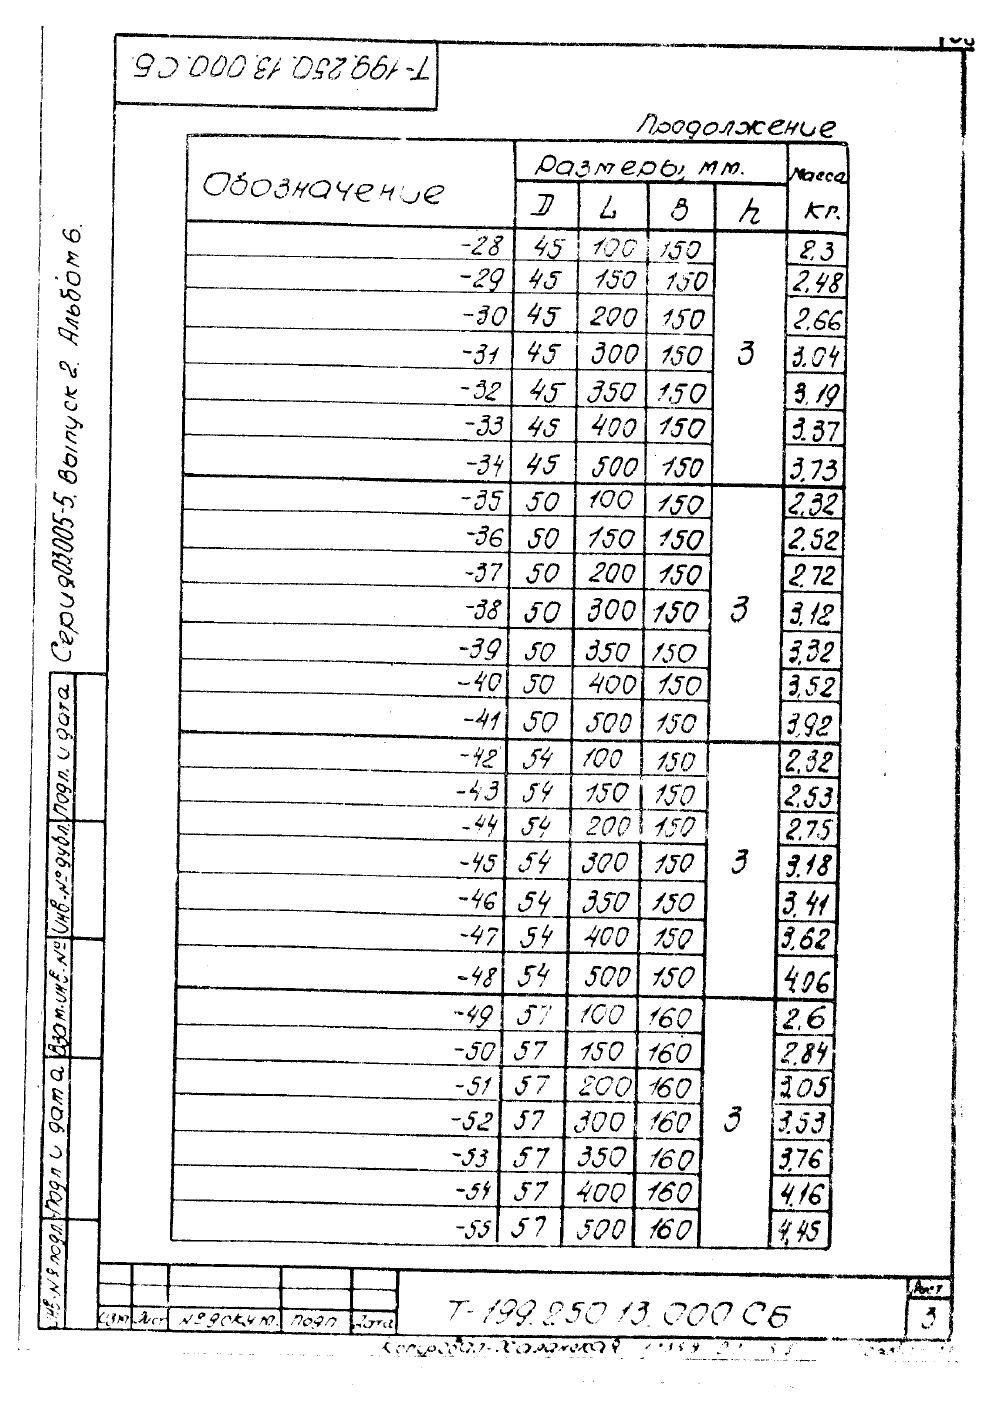 Т-199.250.13.000.СБ
Продолжение
Обозначение Размеры, мм. Масса кг.
D L B h
-28 45 100 150 3 2,3
-29 45 150 150 2,48
-30 45 200 150 2,66
-31 45 300 150 3,04
-32 45 350 150 3,19
-33 45 400 150 3,37
-34 45 500 150 3,73
-35 50 100 150 3 2,32
-36 50 150 150 2,52
-37 50 200 150 2,72
-38 50 300 150 3,12
-39 50 350 150 3,32
-40 50 400 150 3,52
-41 50 500 150 3,92
-42 54 100 150 3 2,32
-43 54 150 150 2,53
-44 54 200 150 2,75
-45 54 300 150 3,18
-46 54 350 150 3,41
-47 54 400 150 3,62
-48 54 500 150 4,06
-49 57 100 160 3 2,6
-50 57 150 160 2,84
-51 57 200 160 3,05
-52 57 300 160 3,53
-53 57 350 160 3,76
-54 57 400 160 4,16
-55 57 500 160 4,45
Серия 03.005-5, Выпуск 2. Альбом 6.
Подп. и дата
Инв. № дубл.
Взам. инв. №
Подп. и дата
Инв. № подл.
Изм Лист № докум. подп Дата
Т-199.250.13.000 СБ
Лист
3
Копировал